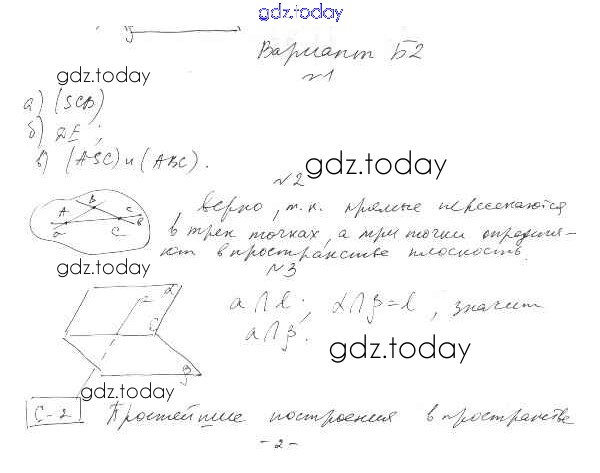 gdz.today
Вариант Б2
gdz.today
№1
а) (SCD)
б) DE;
в) (ASC) и (ABC).
gdz.today
№2
A B C a C в
верно, т.к. прямые пересекаются
в трех точках, а три точки определя-
ют в пространстве плоскость.
gdz.today
№3
α C β
a ∩ ℓ; α ∩ β = ℓ, значит
a ∩ β.
gdz.today
gdz.today
С-2 Простейшие построения в пространстве
- 2 -